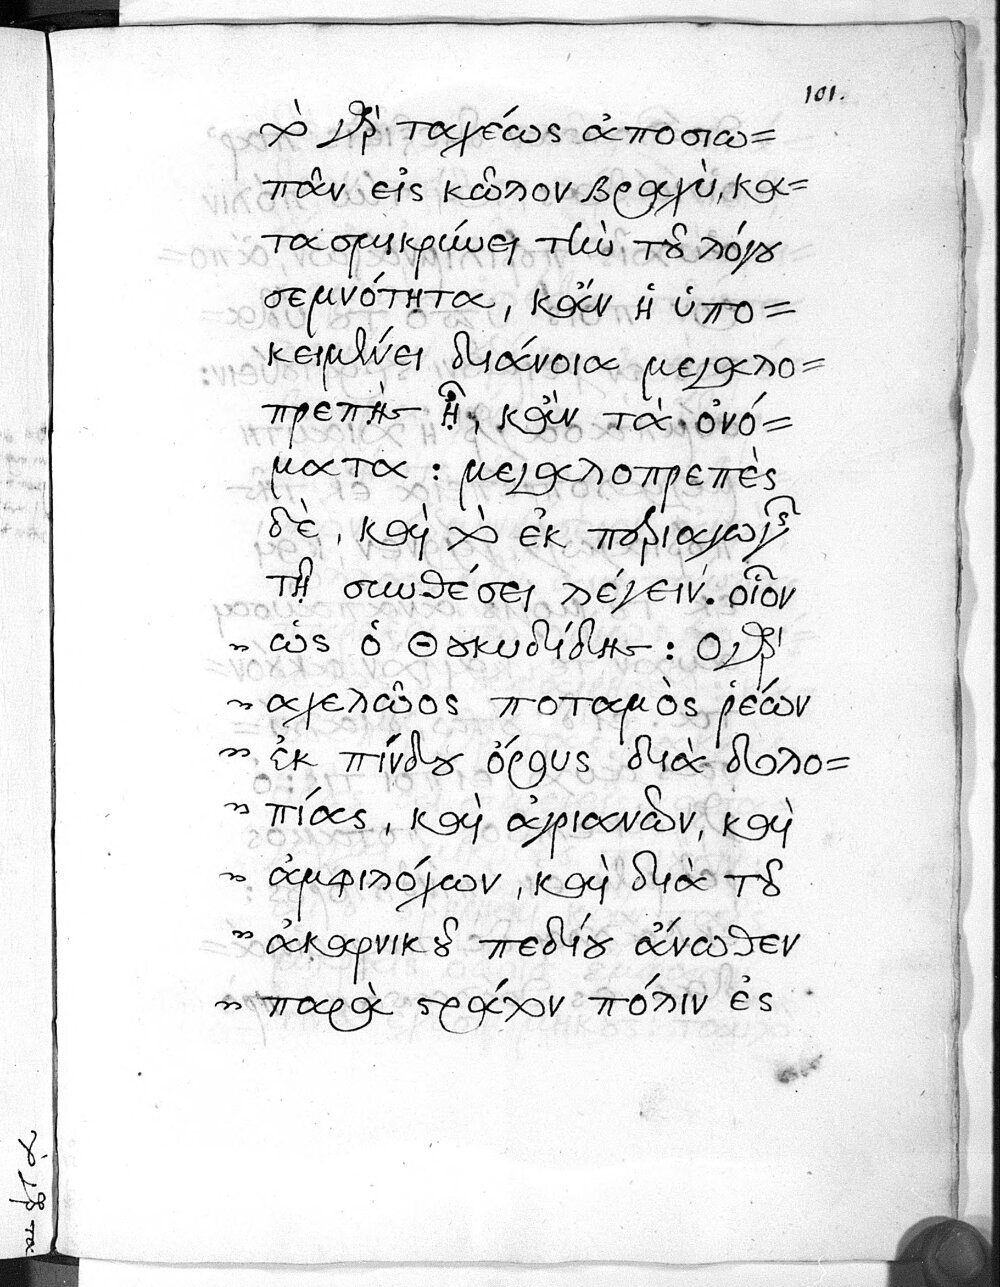 101.
τὸ γὰρ ταχέως ἀποσιω=
πᾶν εἰς κῶλον βραχὺ, κα=
τασμικρύνει τὴν τοῦ λόγου
σεμνότητα, κἂν ἡ ὑπο=
κειμένη διάνοια μεγαλο=
πρεπὴς ᾖ, κἂν τὰ ὀνό=
ματα : μεγαλοπρεπὲς
δὲ, καὶ τὸ ἐκ περιαγωγῆς
τῇ συνθέσει λέγειν. οἷον
" ὡς ὁ Θουκυδίδης : Ὁ γὰρ
" ἀχελῶος ποταμὸς ῥέων
" ἐκ πίνδου ὄρους διὰ δολο=
" πίας, καὶ ἀγριανῶν, καὶ
" ἀμφιλόχων, καὶ διὰ τοῦ
" ἀκαρνικοῦ πεδίου ἄνωθεν
" παρὰ στράτον πόλιν ἐς